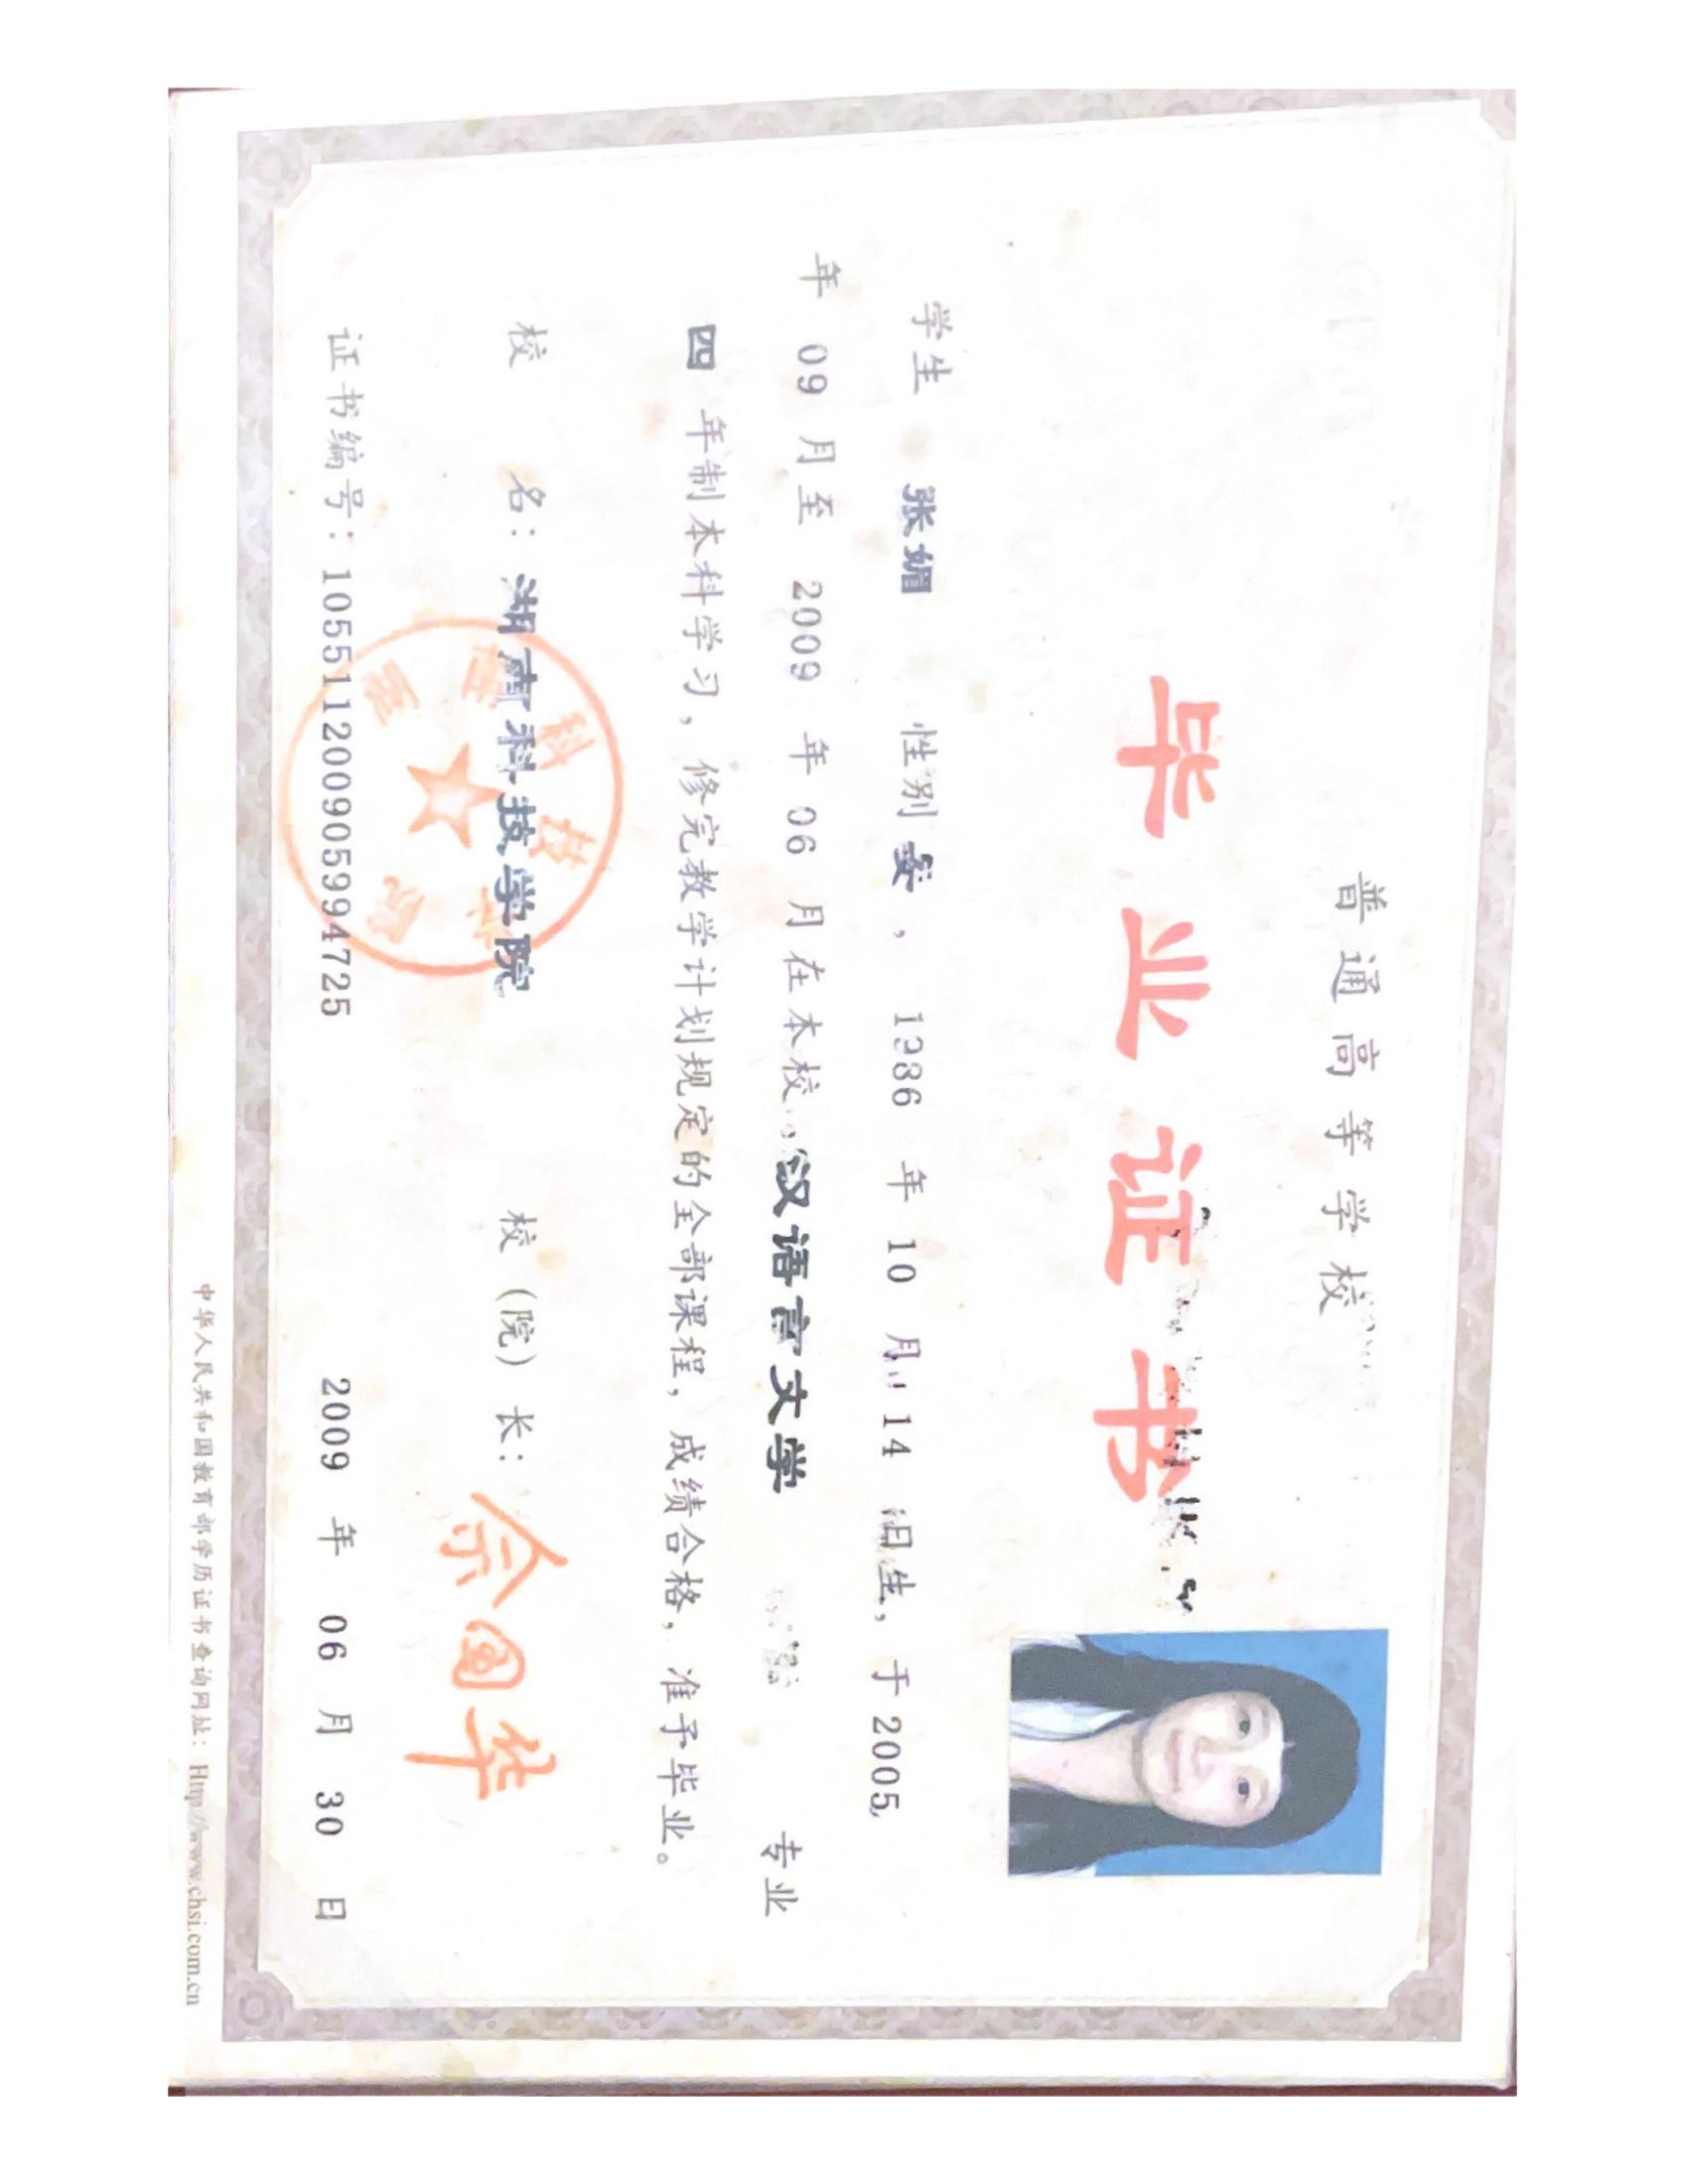 普通高等学校
毕业证书
学生 张媚 性别 女， 1986 年 10 月 14 日生，于 2005
年 09 月至 2009 年 06 月在本校 汉语言文学 专业
四 年制本科学习，修完教学计划规定的全部课程，成绩合格，准予毕业。
校 名： 湖南科技学院 校（院）长： 余国华
证书编号：105511200905994725 2009 年 06 月 30 日
中华人民共和国教育部学历证书查询网址：Http://www.chsi.com.cn